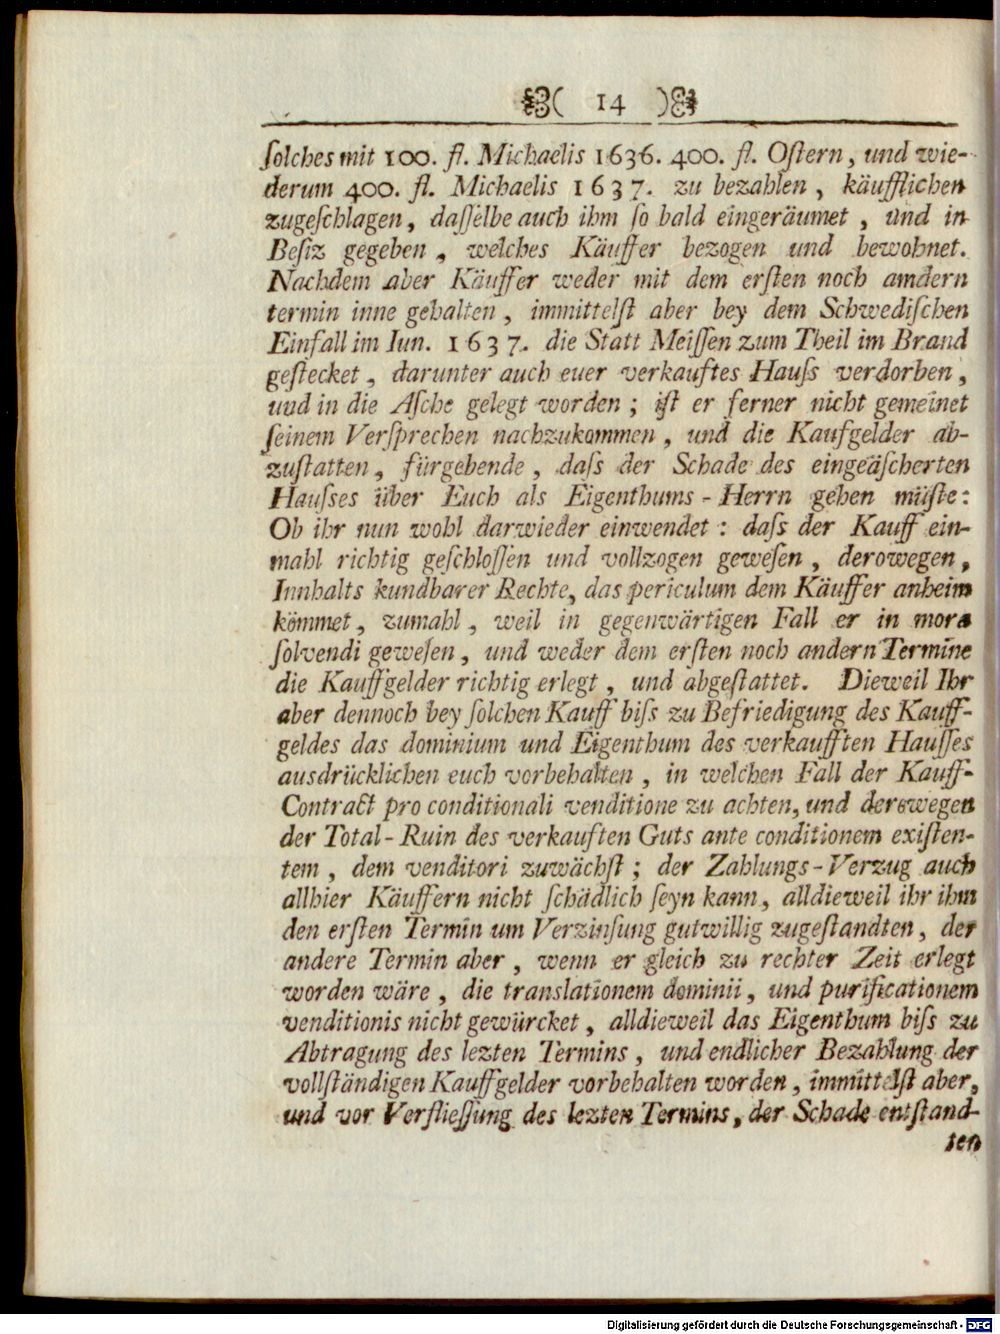 ( 14 )
ſolches mit 100. fl. Michaelis 1636. 400. fl. Oſtern, und wie-
derum 400. fl. Michaelis 1637. zu bezahlen, käufflichen
zugeſchlagen, daſſelbe auch ihm ſo bald eingeräumet, und in
Beſiz gegeben, welches Käuffer bezogen und bewohnet.
Nachdem aber Käuffer weder mit dem erſten noch amdern
termin inne gehalten, immittelſt aber bey dem Schwediſchen
Einfall im Iun. 1637. die Statt Meiſſen zum Theil im Brand
geſtecket, darunter auch euer verkauftes Hauſs verdorben,
und in die Aſche gelegt worden; iſt er ferner nicht gemeinet
ſeinem Verſprechen nachzukommen, und die Kaufgelder ab-
zuſtatten, fürgebende, daſs der Schade des eingeäſcherten
Hauſses über Euch als Eigenthums-Herrn gehen müſte:
Ob ihr nun wohl darwieder einwendet: daſs der Kauff ein-
mahl richtig geſchloſſen und vollzogen geweſen, derowegen,
Innhalts kundbarer Rechte, das periculum dem Käuffer anheim
kömmet, zumahl, weil in gegenwärtigen Fall er in mora
ſolvendi geweſen, und weder dem erſten noch andern Termine
die Kauffgelder richtig erlegt, und abgeſtattet. Dieweil Ihr
aber dennoch bey ſolchen Kauff biſs zu Befriedigung des Kauff-
geldes das dominium und Eigenthum des verkaufften Hauſſes
ausdrücklichen euch vorbehalten, in welchen Fall der Kauff-
Contract pro conditionali venditione zu achten, und derowegen
der Total-Ruin des verkauften Guts ante conditionem exiſten-
tem, dem venditori zuwächſt; der Zahlungs-Verzug auch
allhier Käuffern nicht ſchädlich ſeyn kann, alldieweil ihr ihm
den erſten Termin um Verzinſung gutwillig zugeſtandten, der
andere Termin aber, wenn er gleich zu rechter Zeit erlegt
worden wäre, die translationem dominii, und purificationem
venditionis nicht gewürcket, alldieweil das Eigenthum biſs zu
Abtragung des lezten Termins, und endlicher Bezahlung der
vollſtändigen Kauffgelder vorbehalten worden, immittelſt aber,
und vor Verflieſſung des lezten Termins, der Schade entſtand-
ten
Digitalisierung gefördert durch die Deutsche Forschungsgemeinschaft - DFG